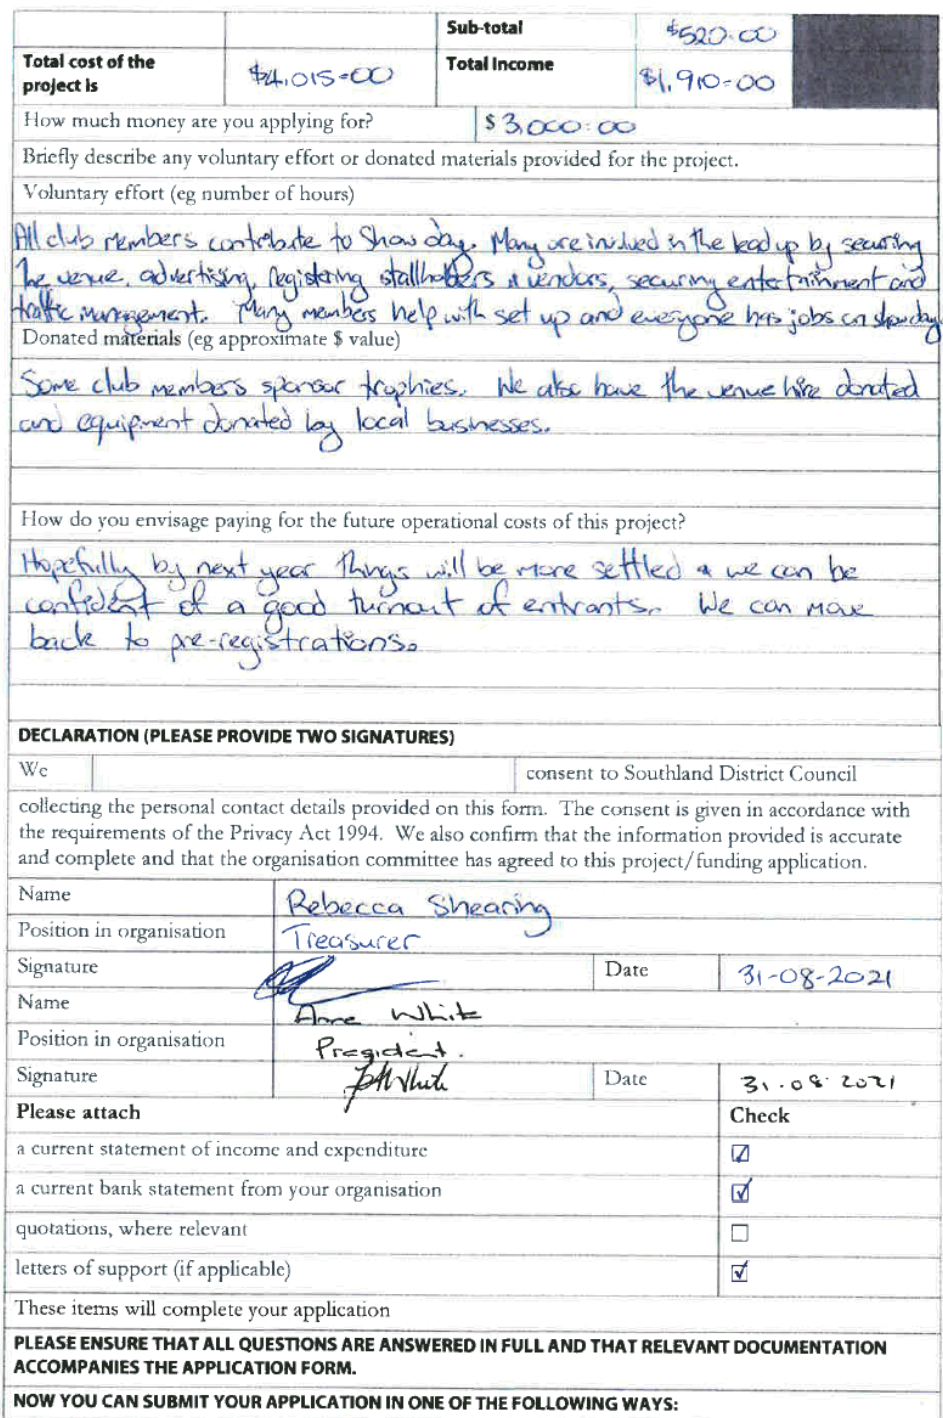 Sub-total $520.00
Total cost of the project is $4,015-00 Total Income $1,910-00
How much money are you applying for? $ 3,000:00
Briefly describe any voluntary effort or donated materials provided for the project.
Voluntary effort (eg number of hours)
All club members contribute to Show day. Many are involved in the lead up by securing
the venue, advertising, registering stallholders & vendors, securing entertainment and
traffic management. Many members help with set up and everyone has jobs on show day
Donated materials (eg approximate $ value)
Some club members sponsor trophies. We also have the venue hire donated
and equipment donated by local businesses.
How do you envisage paying for the future operational costs of this project?
Hopefully by next year things will be more settled & we can be
confident of a good turnout of entrants. We can move
back to pre-registrations.
DECLARATION (PLEASE PROVIDE TWO SIGNATURES)
We consent to Southland District Council
collecting the personal contact details provided on this form. The consent is given in accordance with
the requirements of the Privacy Act 1994. We also confirm that the information provided is accurate
and complete and that the organisation committee has agreed to this project/funding application.
Name Rebecca Shearing
Position in organisation Treasurer
Signature Date 31-08-2021
Name Anne White
Position in organisation President.
Signature White Date 31.08.2021
Please attach Check
a current statement of income and expenditure
a current bank statement from your organisation
quotations, where relevant
letters of support (if applicable)
These items will complete your application
PLEASE ENSURE THAT ALL QUESTIONS ARE ANSWERED IN FULL AND THAT RELEVANT DOCUMENTATION
ACCOMPANIES THE APPLICATION FORM.
NOW YOU CAN SUBMIT YOUR APPLICATION IN ONE OF THE FOLLOWING WAYS: